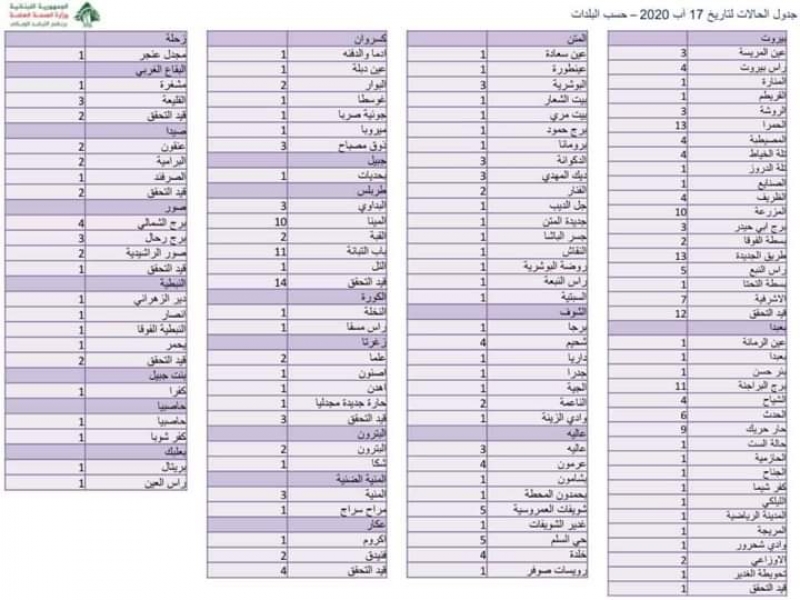 الجمهورية اللبنانية
وزارة الصحة العامة
جدول الحالات لتاريخ 17 آب 2020 – حسب البلدات
بيروت
عين المريسة 3
راس بيروت 4
المنارة 1
القريطم 1
الروشة 3
الحمرا 13
المصيطبة 4
تلة الخياط 4
تلة الدروز 1
الصنايع 1
الظريف 4
المزرعة 10
برج ابي حيدر 3
بسطة الفوقا 2
طريق الجديدة 13
راس النبع 5
بسطة التحتا 1
الاشرفية 7
قيد التحقق 12
بعبدا
عين الرمانة 1
بعبدا 1
بئر حسن 1
برج البراجنة 11
الشياح 4
الحدث 6
حار حريك 9
حالة الست 1
الحازمية 1
الجناح 1
كفر شيما 1
الليلكي 1
المدينة الرياضية 1
المريجة 1
وادي شحرور 1
الاوزاعي 2
تحويطة الغدير 1
قيد التحقق 1
المتن
عين سعادة 1
عينطورة 1
البوشرية 3
بيت الشعار 1
بيت مري 1
برج حمود 1
برومانا 1
الدكوانة 3
ديك المهدي 3
الفنار 2
جل الديب 1
جديدة المتن 1
جسر الباشا 1
النقاش 1
روضة البوشرية 1
راس النبعة 1
السبتية 1
الشوف
برجا 1
شحيم 4
داريا 1
جدرا 1
الجية 1
الناعمة 2
وادي الزينة 1
عاليه
عاليه 3
عرمون 4
بشامون 1
بحمدون المحطة 1
شويفات العمروسية 5
غدير الشويفات 1
حي السلم 5
خلدة 4
رويسات صوفر 1
كسروان
ادما والدفنه 1
عين دبلة 1
البوار 2
غوسطا 1
جونية صربا 1
ميروبا 1
ذوق مصباح 3
جبيل
بحديات 1
طرابلس
البداوي 3
المينا 10
القبة 2
باب التبانة 11
التل 1
قيد التحقق 14
الكورة
النخلة 1
راس مسقا 1
زغرتا
علما 2
اصنون 1
اهدن 1
حارة جديدة مجدليا 1
قيد التحقق 3
البترون
البترون 2
شكا 1
المنية الضنية
المنية 3
مراح سراج 1
عكار
اكروم 1
فنيدق 2
قيد التحقق 4
زحلة
مجدل عنجر 1
البقاع الغربي
مشغرة 1
القليعة 3
قيد التحقق 2
صيدا
عنقون 2
البرامية 2
الصرفند 1
قيد التحقق 2
صور
برج الشمالي 4
برج رحال 3
صور الراشيدية 2
قيد التحقق 1
النبطية
دير الزهراني 1
انصار 1
النبطية الفوقا 1
يحمر 1
قيد التحقق 2
بنت جبيل
كفرا 1
حاصبيا
حاصبيا 1
كفر شوبا 1
بعلبك
بريتال 1
راس العين 1